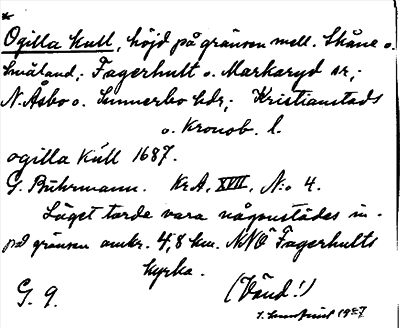 *
Ogilla Kull, höjd på gränsen mell. Skåne o.
Småland; Fagerhult o. Markaryd sr;
N. Åsbo o. Sunnerbo hdr; Kristianstads
o. Kronob. l.
ogilla Kúll 1687.
G. Buhrmann. Kr.A, XVII, N:o 4.
Läget torde vara någonstädes in-
på gränsen omkr. 4,8 km. NNÖ Fagerhults
kyrka.
G. 9.
(Vänd!)